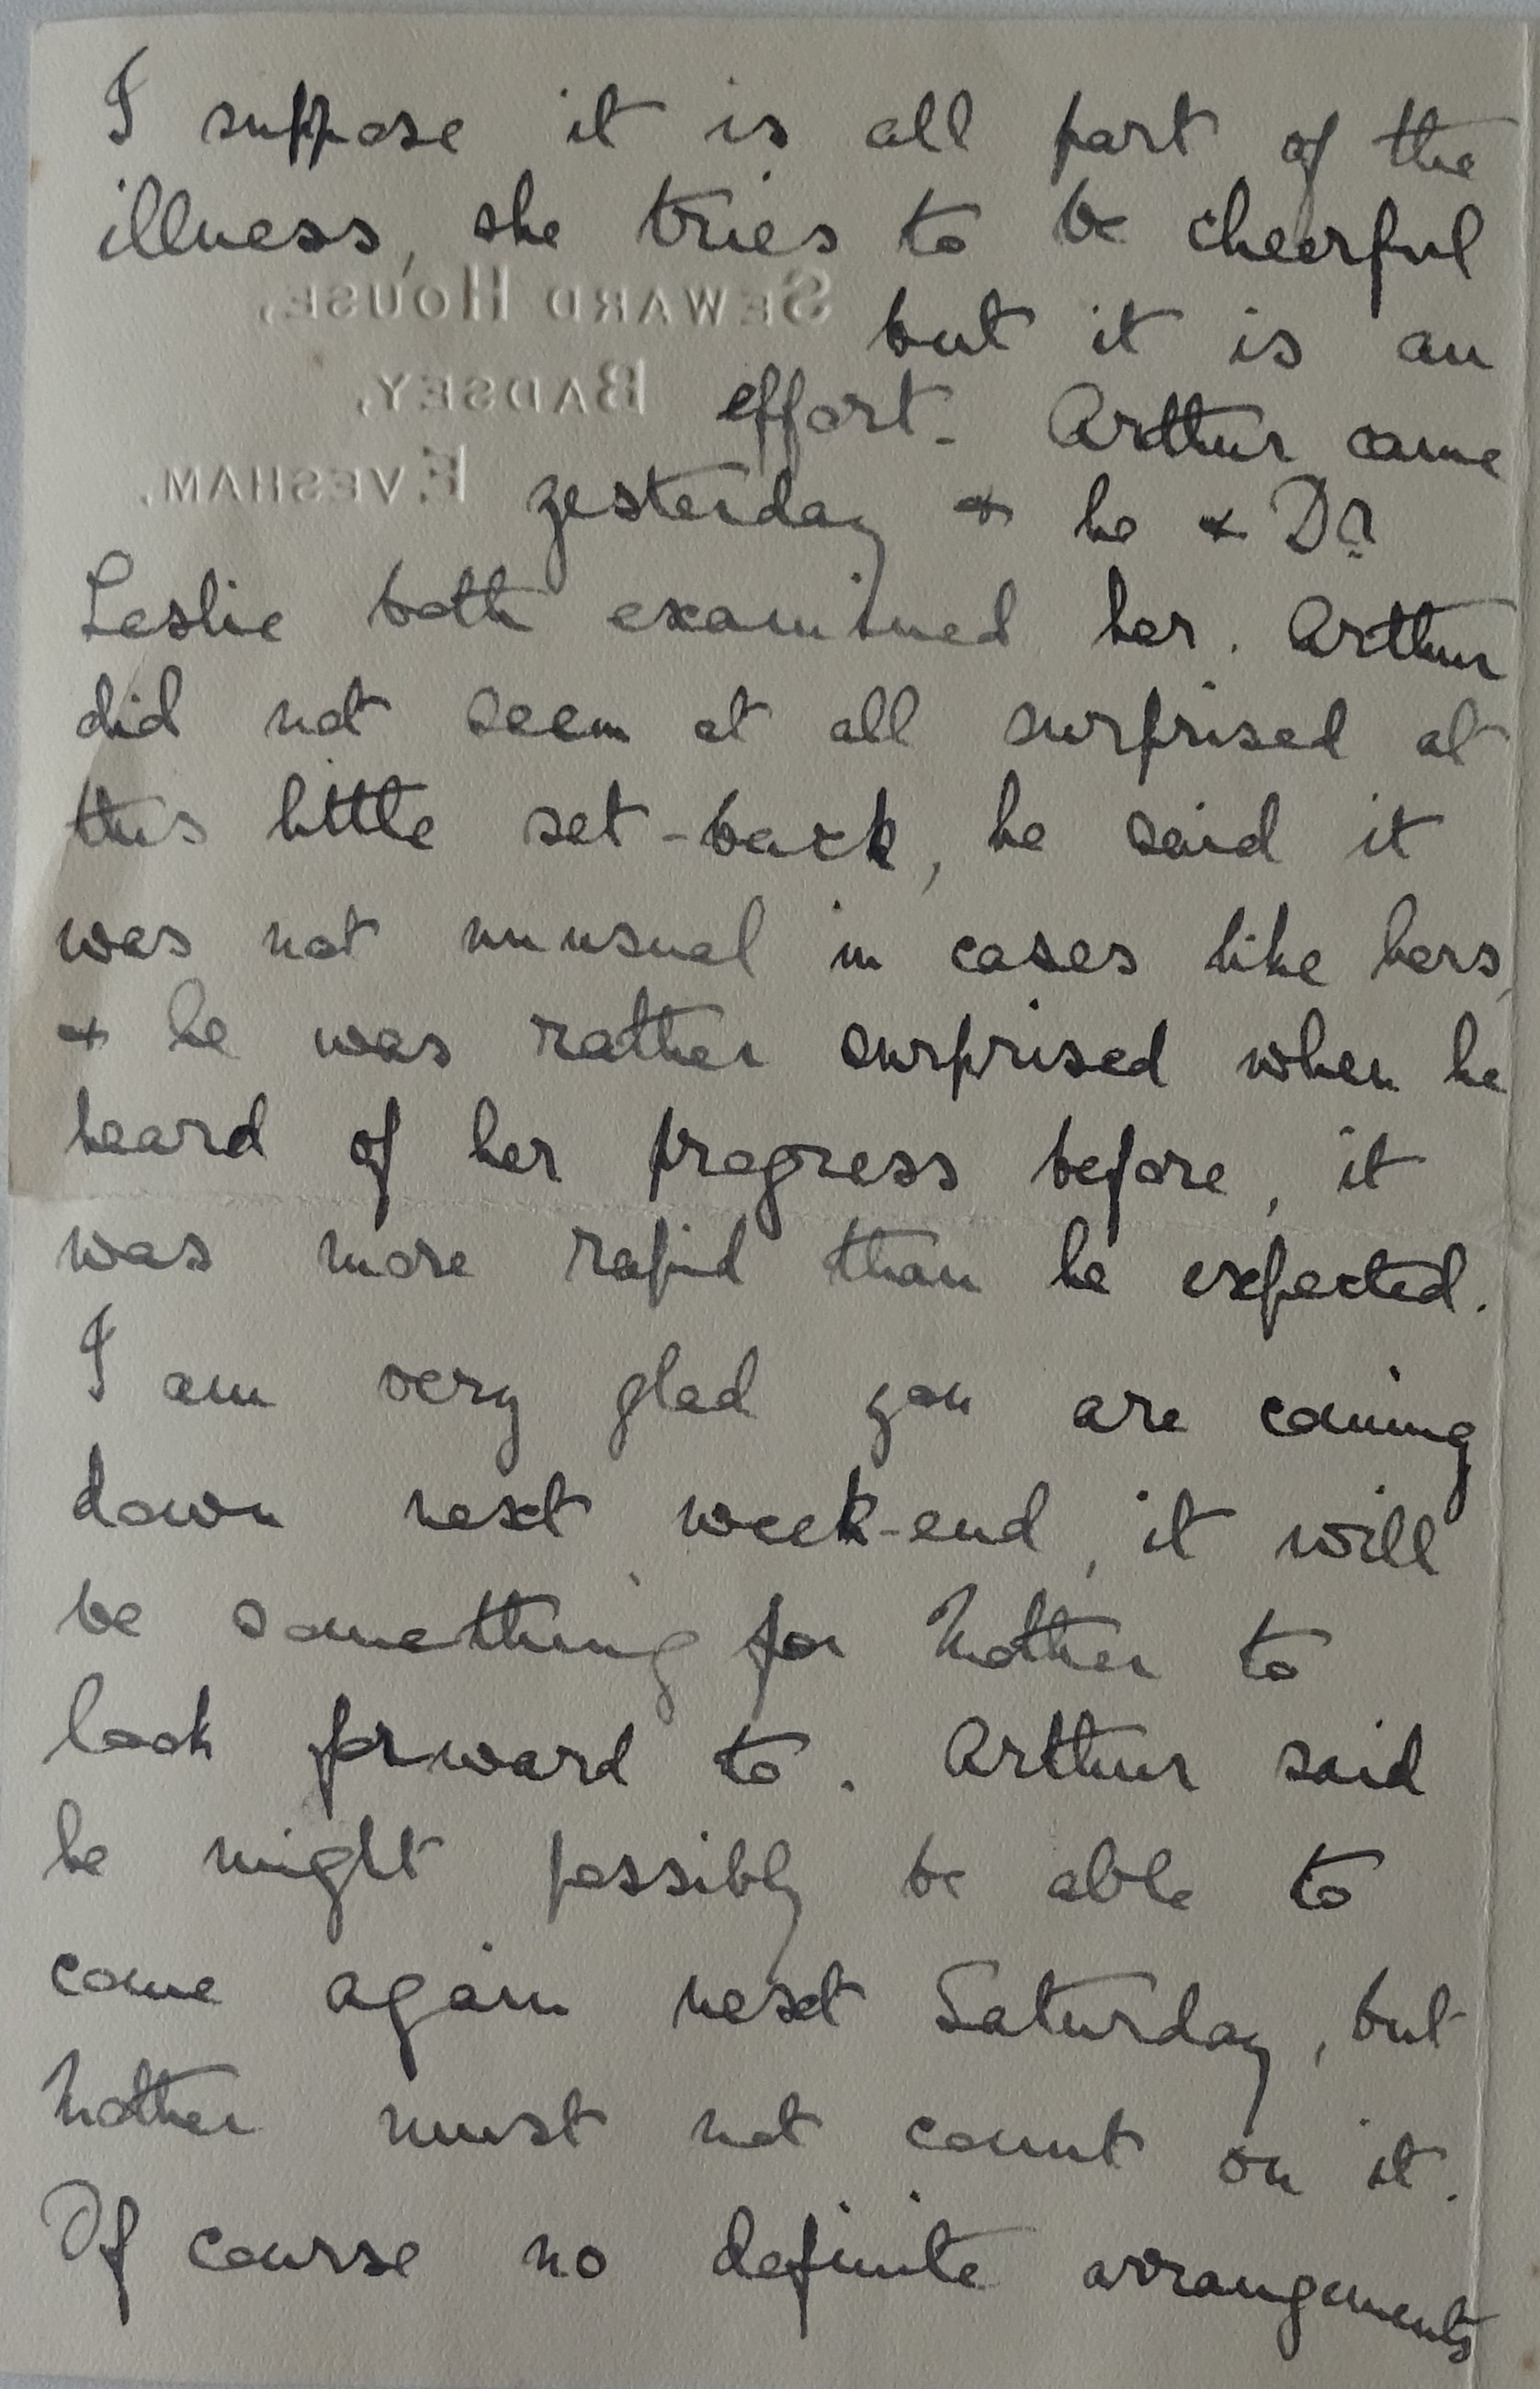 I suppose it is all part of the
illness, she tries to be cheerful
SEWARD HOUSE,
but it is an
BADSEY,
effort. Arthur came
EVESHAM.
yesterday & he & Dr
Leslie both examined her. Arthur
did not seem at all surprised at
this little set-back, he said it
was not unusual in cases like hers,
& he was rather surprised when he
heard of her progress before, it
was more rapid than he expected.
I am very glad you are coming
down next week-end, it will
be something for Mother to
look forward to. Arthur said
he might possibly be able to
come again next Saturday, but
Mother must not count on it.
Of course no definite arrangements